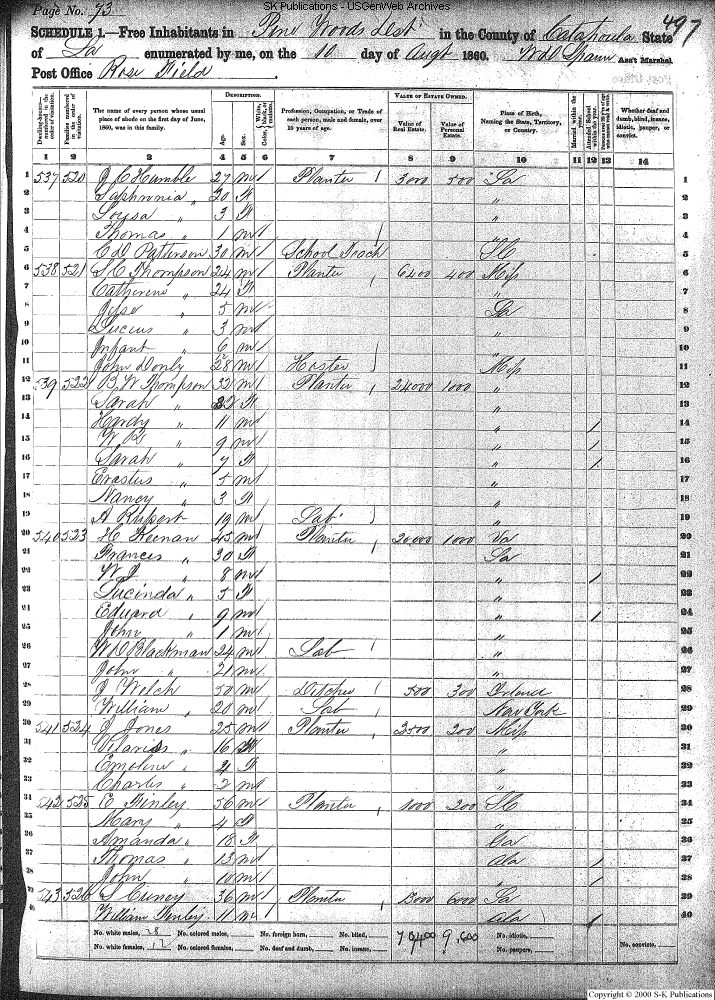 SK Publications - USGenWeb Archives
Page No. 73
497
SCHEDULE 1.—Free Inhabitants in Pine Woods Dist in the County of Catahoula State
of La enumerated by me, on the 10 day of Augt 1860. Ass't Marshal.
Post Office Rose Field
DESCRIPTION. VALUE OF ESTATE OWNED.
Dwelling-houses— numbered in the order of visitation.
Families numbered in the order of visitation.
The name of every person whose usual place of abode on the first day of June, 1860, was in this family.
Age.
Sex.
Profession, Occupation, or Trade of each person, male and female, over 15 years of age.
Value of Real Estate.
Value of Personal Estate.
Place of Birth, Naming the State, Territory, or Country.
Married within the year.
Attended School within the year.
Whether deaf and dumb, blind, insane, idiotic, pauper, or convict.
1 2 3 4 5 6 7 8 9 10 11 12 13 14
1 537 520 J C Humble 27 m Planter 3000 500 La 1
2 Saphronia " 20 f " 2
3 Louisa " 3 f " 3
4 Thomas " 1 m " 4
5 C D Patterson 30 m School Teach SC 5
6 538 521 S C Thompson 24 m Planter 6400 400 Mip 6
7 Catherine " 24 f " 7
8 Jesse " 5 m La 8
9 Lucius " 3 m " 9
10 Infant " 6/12 m " 10
11 John Donly 28 m Mip 11
12 539 522 B W Thompson 33 m Planter 24000 1000 " 12
13 Sarah " 32 f " 13
14 Hardy " 11 m " / 14
15 W R " 9 m " / 15
16 Sarah " 7 f " / 16
17 Erastus " 5 m " 17
18 Nancy " 3 f " 18
19 A Rupert 19 m Lab " 19
20 540 523 H Keenan 45 m Planter 20000 1000 Va 20
21 Frances " 30 f La 21
22 W J " 8 m " / 22
23 Lucinda " 5 f " 23
24 Eduard " 9 m " / 24
25 John " 1 m " 25
26 W D Blackman 24 m Lab " 26
27 John " 21 m " 27
28 J Welch 50 m Ditcher 500 300 Irland 28
29 William " 20 m Lab New York 29
30 541 524 J Jones 25 m Planter 2500 200 Mip 30
31 " 16 f " 31
32 Emoline " 4 f " 32
33 Charles " 2 m " 33
34 542 525 E Finley 56 m Planter 1000 200 SC 34
35 Mary " 4 f " 35
36 Amanda " 18 f Ga 36
37 Thomas " 13 m Ala / 37
38 John " 10 m " / 38
39 543 526 S Cuney 36 m Planter 15000 6000 La 39
40 William Finley 11 m Ala / 40
No. white males, 28 No. colored males, No. foreign born, No. blind, 70400 9,600 No. idiotic,
No. white females, 12 No. colored females, No. deaf and dumb, No. insane, No. paupers, No. convicts,
Copyright © 2000 S-K Publications